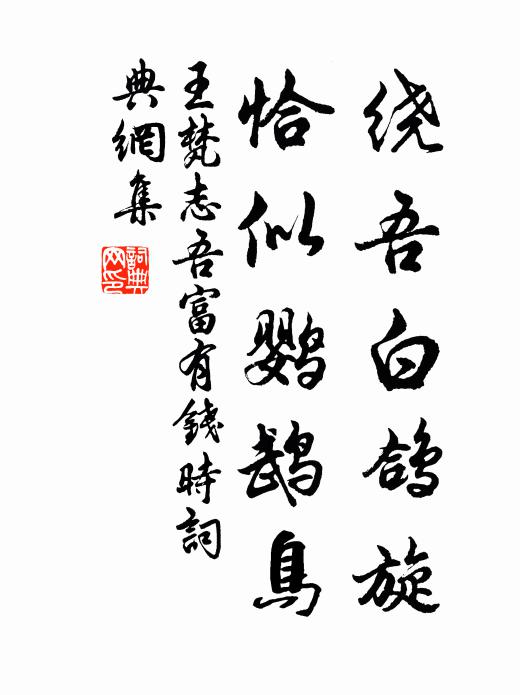 绕吾白鸽旋
恰似鹦鹉鳥
王梵志吾富有錢時詞
典網集
詞典
网印